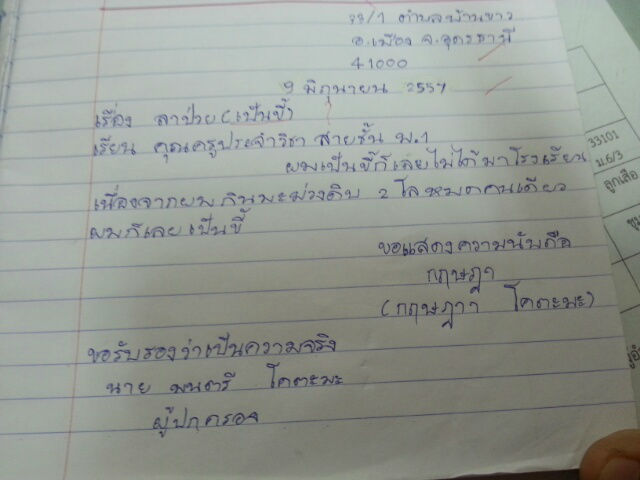 33/1 ตำบลบ้านขาว
อ.เมือง จ.อุดรธานี
41000
9 มิถุนายน 2557
เรื่อง ลาป่วย (เป็นขี้)
เรียน คุณครูประจำวิชา สายชั้น ม.1
ผมเป็นขี้ก็เลยไม่ได้มาโรงเรียน
เนื่องจากผมกินมะม่วงดิบ 2 โลหมดคนเดียว
ผมก็เลยเป็นขี้
ขอแสดงความนับถือ
กฤษฎา
(กฤษฎา โคตะมะ)
ขอรับรองว่าเป็นความจริง
นาย มนตรี โคตะมะ
ผู้ปกครอง
33101
ม.6/3
ลูกเสือ